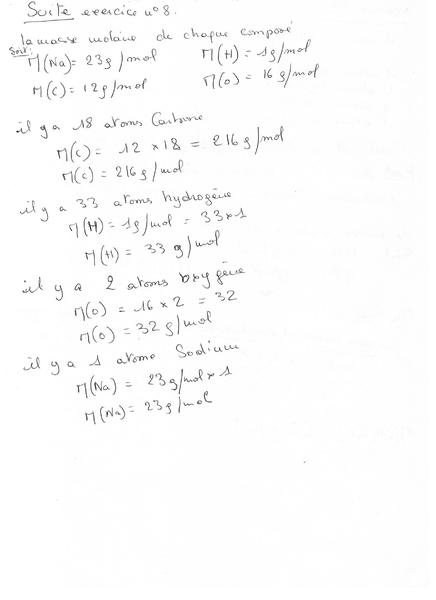 Suite exercice n°8.
la masse molaire de chaque composé
Soit: M(Na)= 23g/mol M(H)= 1g/mol
M(C)= 12g/mol M(O)= 16g/mol
il y a 18 atoms Carbone
M(C)= 12 × 18 = 216g/mol
M(C)= 216g/mol
il y a 33 atoms hydrogène
M(H)= 1g/mol = 33×1
M(H)= 33 g/mol
il y a 2 atoms oxygène
M(O) = 16 × 2 = 32
M(O)= 32g/mol
il y a 1 atome Sodium
M(Na) = 23g/mol × 1
M(Na)= 23g/mol